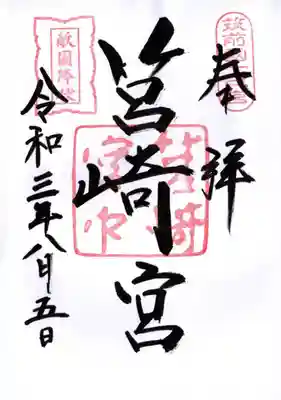 奉拝
筑前國一之宮
筥崎宮
敵國降伏
令和三年八月五日